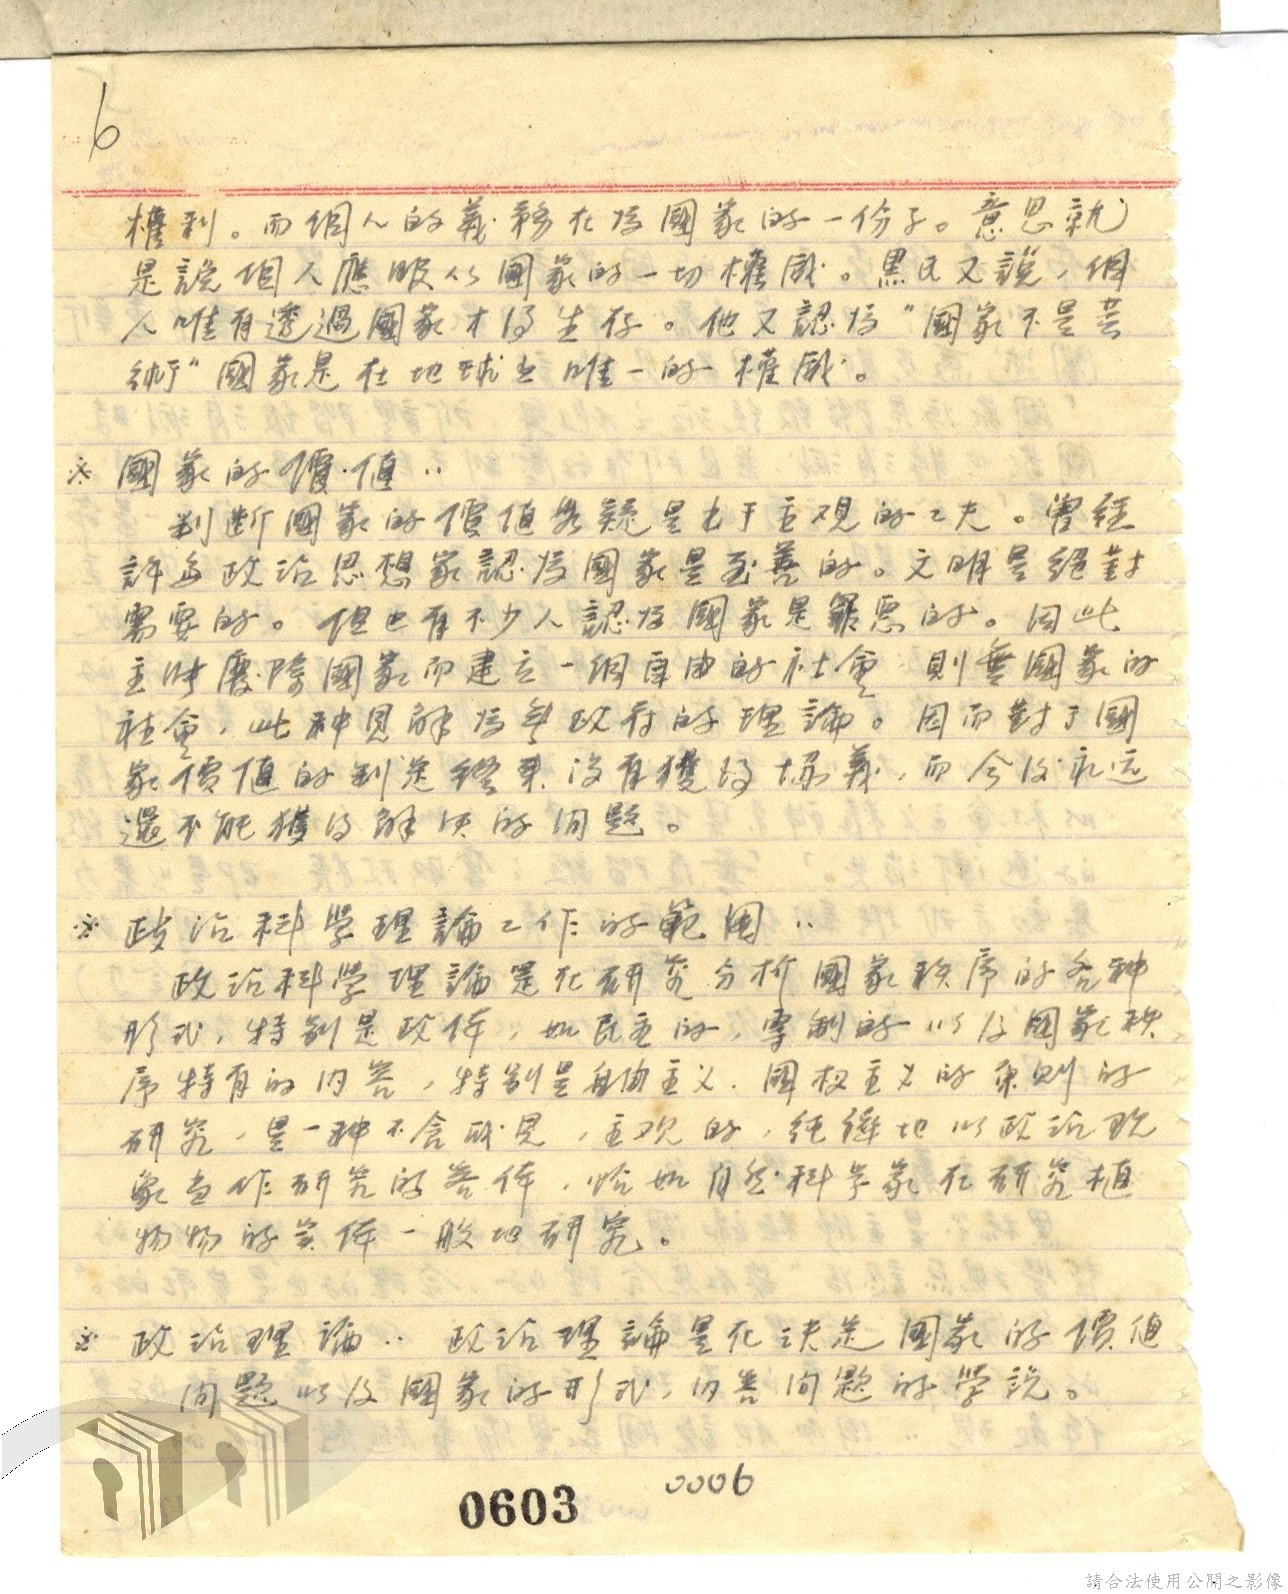 6
權利。而個人的義務在為國家的一份子。意思就
是說個人應服从國家的一切權威。黑氏又說，個
人唯有透過國家才得生存。他又認為“國家不是芸
術”國家是在地球上唯一的權威。
※ 國家的價值‥
判斷國家的價值無疑是由于主观的工夫。曾經
許多政治思想家認為國家是至善的。文明是絕對
需要的。但也有不少人認為國家是罪惡的。因此
主張廢除國家而建立一個自由的社會，則無國家的
社會，此种見解為無政府的理論。因而對于國
家價值的判定終未沒有獲得協義，而今後永远
還不能獲得解決的问題。
※ 政治科學理論工作的範围‥
政治科學理論是在研究分析國家秩序的各种
形式，特別是政体，如民主的，專制的以及國家秩
序特有的内容，特別是自由主义．國权主义的原則的
研究，是一种不含成見，主观的，純粹地以政治現
象当作研究的客体，恰如自然科学家在研究植
物物的实体一般地研究。
※ 政治理論‥ 政治理論是在決定國家的價值
问題以及國家的形式，内容问題的學說。
0006
0603
請合法使用公開之影像